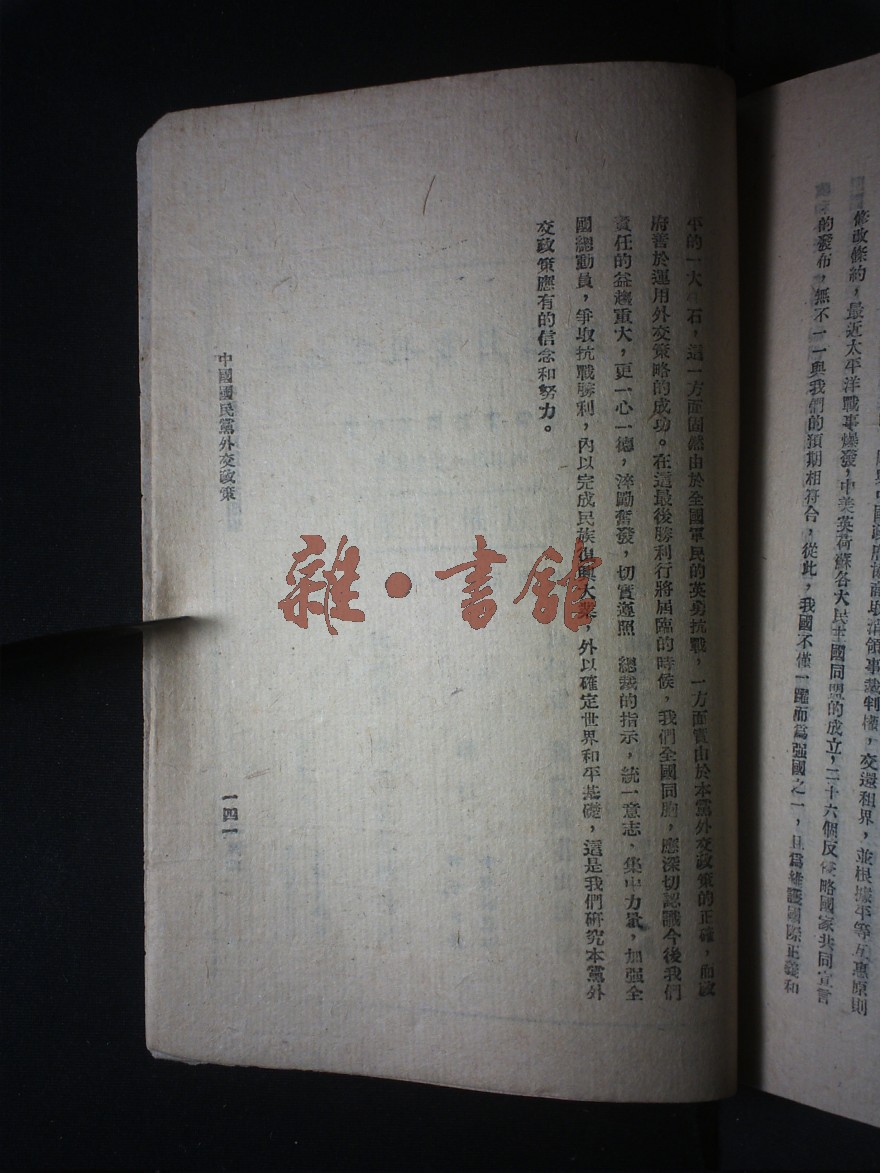 修改條約，最近太平洋戰事爆發，中美英荷蘇各大民主國同盟的成立，二十六個反侵略國家共同宣言
的發布，無不一一與我們的預期相符合，從此，我國不僅一躍而爲强國之一，且爲維護國際正義和
平的一大 石，這一方面固然由於全國軍民的英勇抗戰，一方面實由於本黨外交政策的正確，而政
府善於運用外交策略的成功。在這最後勝利行將屆臨的時候，我們全國同胞，應深切認識今後我們
責任的益趨重大，更一心一德，淬勵奮發，切實遵照　總裁的指示，統一意志，集中力量，加强全
國總動員，爭取抗戰勝利，內以完成民族復興大業，外以確定世界和平基礎，這是我們研究本黨外
交政策應有的信念和努力。
中國國民黨外交政策
一四一
雜·書館